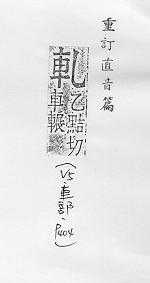 重訂直音篇
軋
乙點切
車輾
(V5.車部.P404)